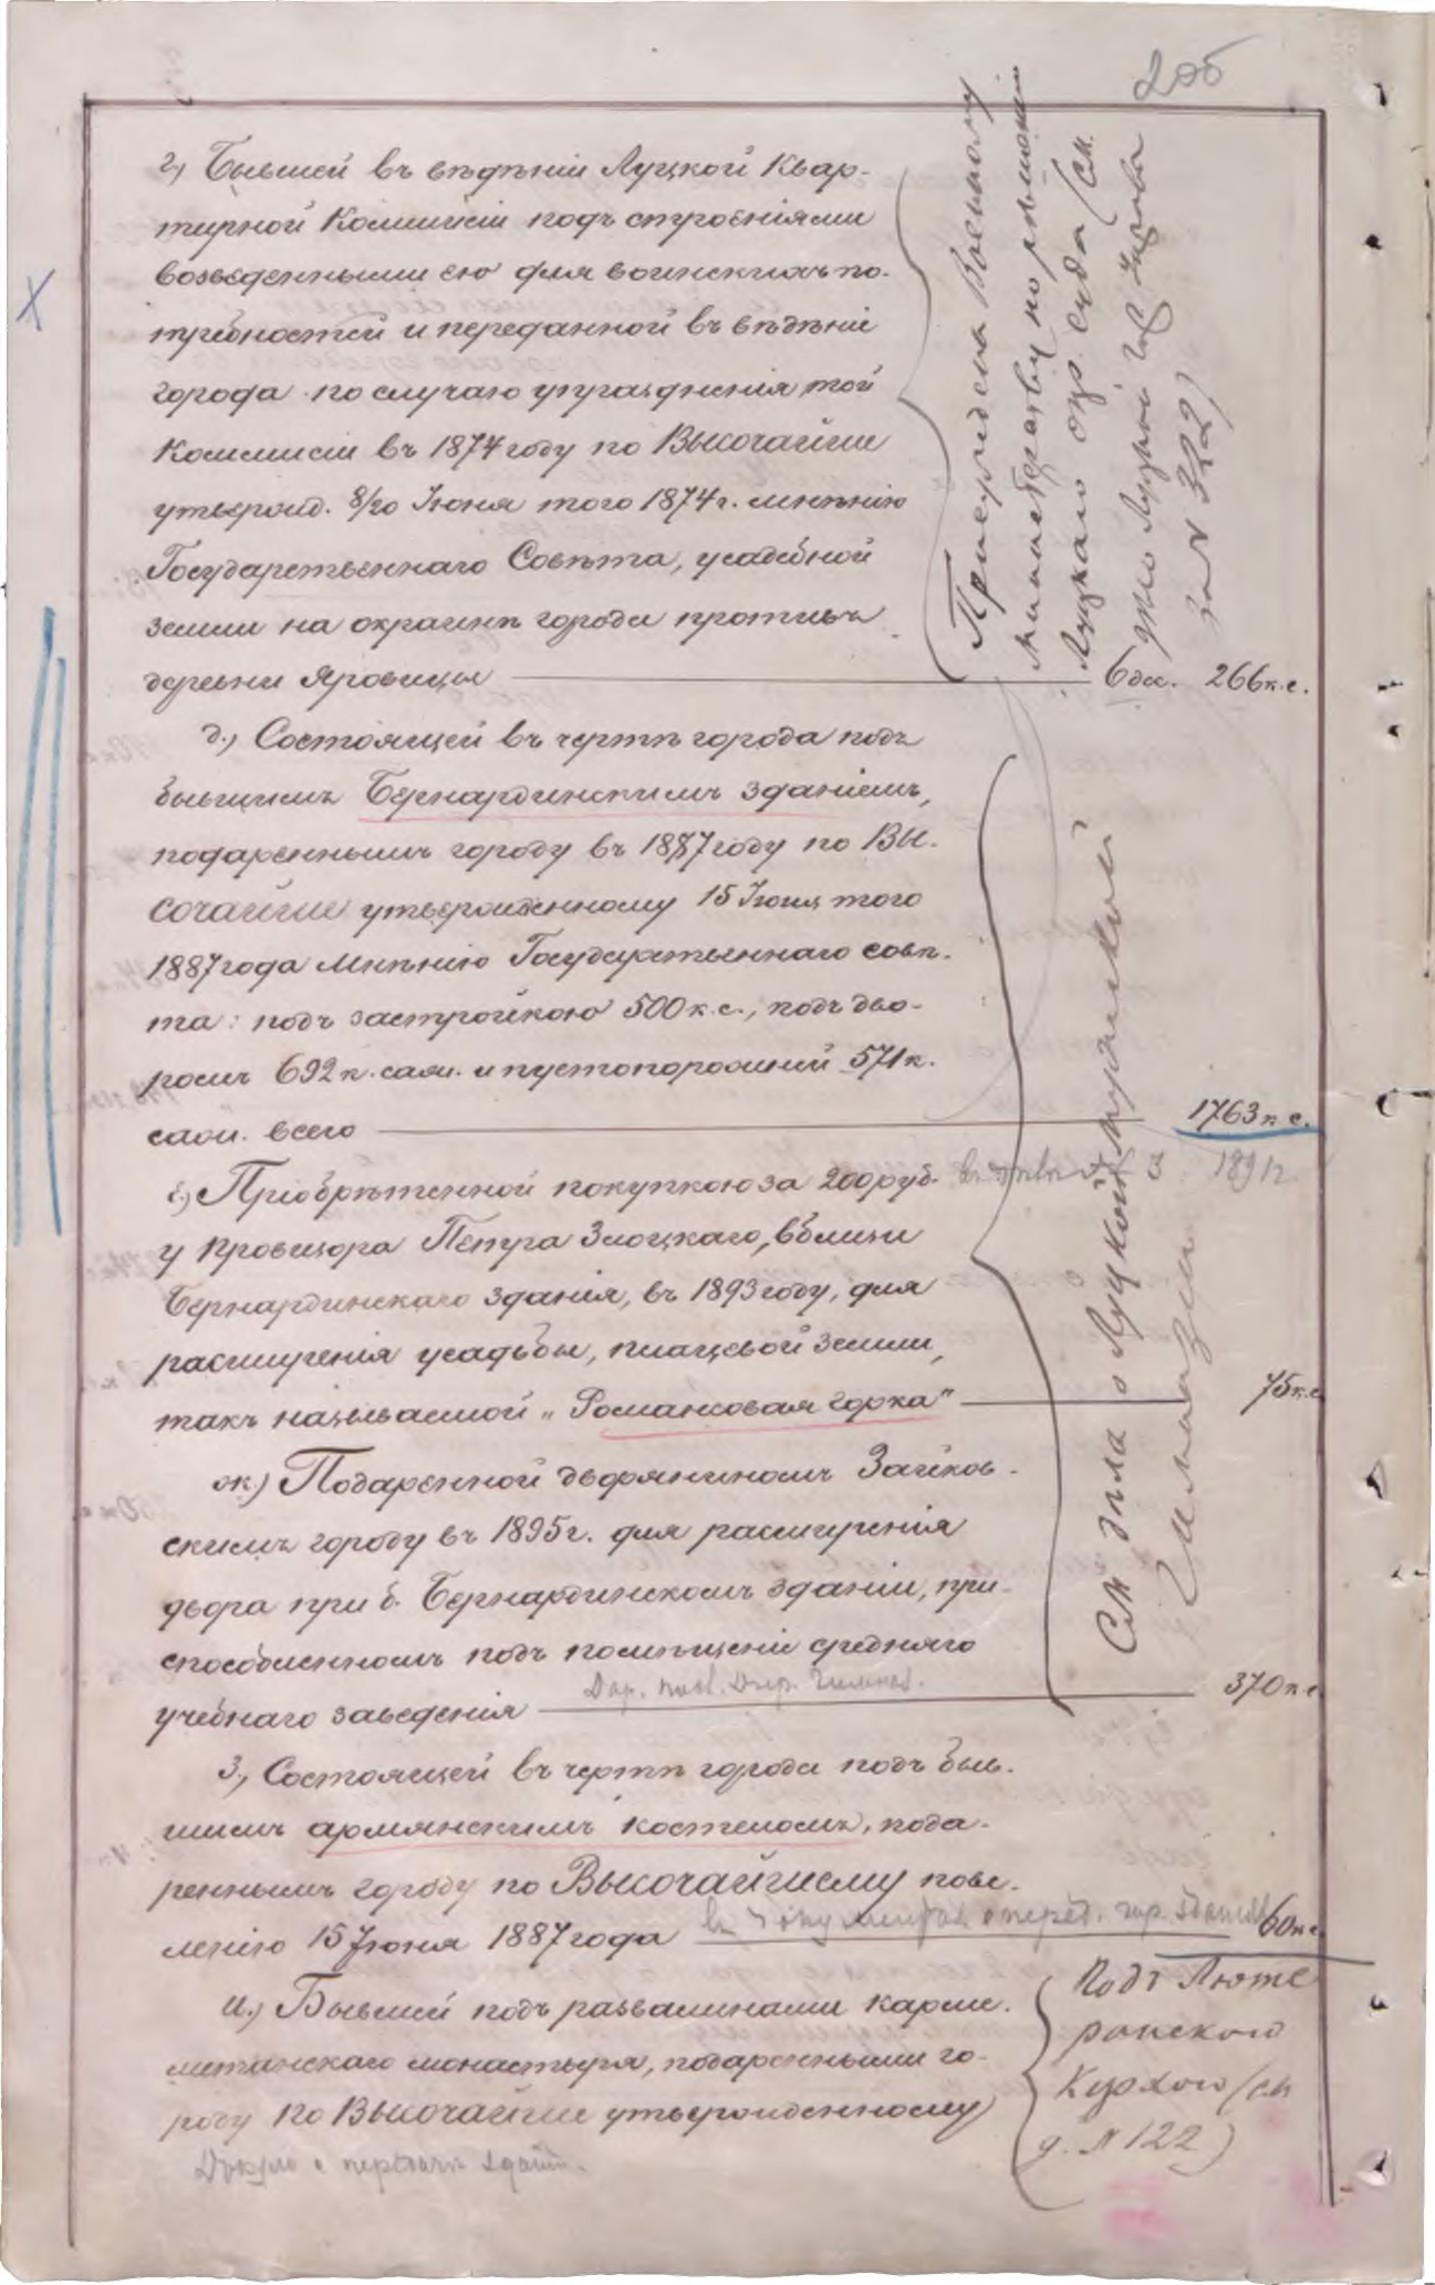 205
г) Бывшей въ вѣдѣніи Луцкой Квар-
тирной Коммисіи подъ строеніями
возведенными ею для воинскихъ по-
требностей и переданной въ вѣдѣніе
города по случаю упраздненія той
Коммисіи въ 1874 году по Высочайше
утвержд. 8/20 Іюня того 1874 г. мнѣнію
Государственнаго Совѣта, усадебной
земли на окраинѣ города противъ
деревни Яровицы 6 дес. 266 к. с.
Присуждена Военному
Министерству по рѣшенію
Луцкаго окр. суда (см.
дѣло Луцкой Гор Управы
за N 322)
д.) Состоящей въ чертѣ города подъ
бывшимъ Бернардинскимъ зданіемъ,
подареннымъ городу въ 1887 году по Вы-
сочайше утвержденному 15 Іюня того
1887 года мнѣнію Государственнаго совѣ-
та: подъ застройкою 500 к. с., подъ дво-
ромъ 692 к. саж. и пустопорожней 571 к.
саж. всего 1763 к с.
е) Пріобрѣтенной покупкою за 200 руб. 1891 г.
у провизора Петра Злоцкаго, вблизи
Бернардинскаго зданія, въ 1893 году, для
расширенія усадьбы, плацевой земли,
такъ называемой „Романсовая горка" 75 к. с
ж.) Подаренной дворяниномъ Зайков-
скимъ городу въ 1895 г. для расширенія
двора при б. Бернардинскомъ зданіи, при-
способленномъ подъ помѣщеніе средняго
Дар. Гимназ.
учебнаго заведенія 370 к с
См дѣла о Луцкой мужской
Гимназіи
з.) Состоящей въ чертѣ города подъ быв-
шимъ армянскимъ костеломъ, пода-
реннымъ городу по Высочайшему пове-
лѣнію 15 Іюня 1887 года 60 к с
и.) Бывшей подъ развалинами карме-
литанскаго монастыря, подаренными го-
роду по Высочайше утвержденному
Подъ Люте
ранскою
Кирхою (см
д. N 122)
Дѣло о передачѣ здан.